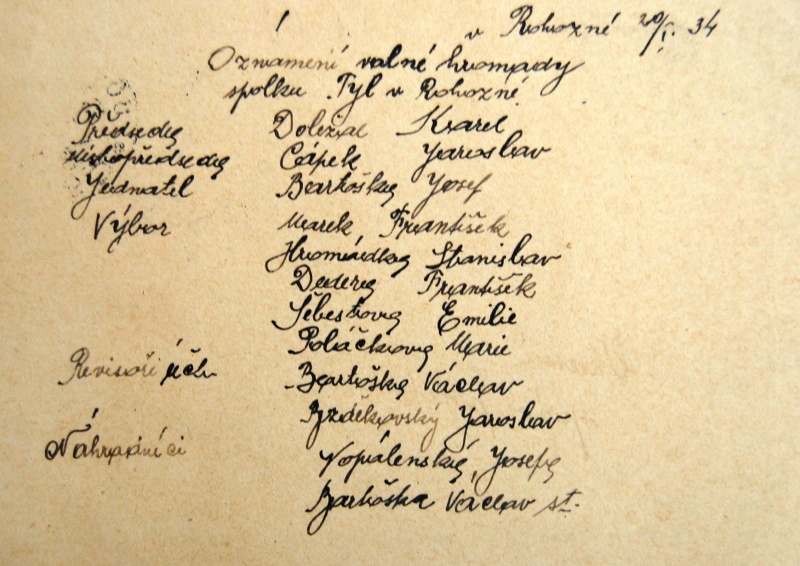 v Rohozné 20/I. 34
Oznámení valné hromady
spolku Tyl v Rohozné
Předseda Doležal Karel
Místopředseda Čápek Jaroslav
Jednatel Bartoška Josef
Výbor Marek František
Hromádka Stanislav
Dedera František
Šebestova Emilie
Poláčkova Marie
Revisoři účtu Bartoška Václav
Jaroslav
Náhradníci Vopálenská Josefa
Bartoška Václav st.